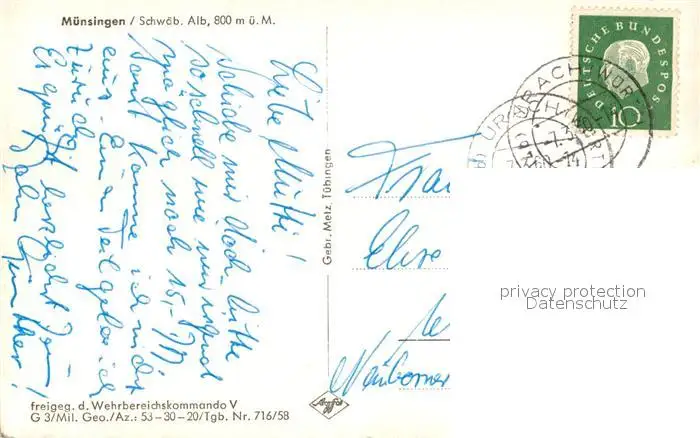 Münsingen / Schwäb. Alb, 800 m ü. M.
Liebe Mutti!
Schicke mir doch bitte
so schnell wie nur irgend
möglich noch 15,- DM
sonst komme ich nicht
aus. Einen Teil geb ich
zurück
Es grüßt herzlichst Dein
Sohn Günther!
Gebr. Metz, Tübingen
DEUTSCHE BUNDESPOST
10
URACH
Frau
Else
Neuborner
privacy protection
Datenschutz
Agfa
freigeg. d. Wehrbereichskommando V
G 3/Mil. Geo./Az.: 53-30-20/Tgb. Nr. 716/58